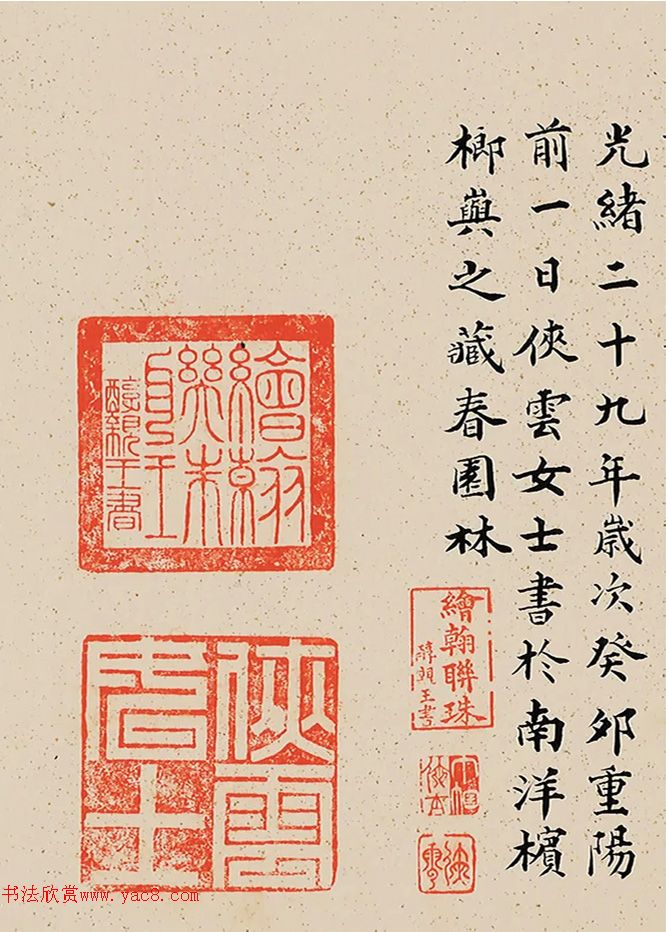 光緒二十九年歲次癸卯重陽
前一日俠雲女士書於南洋檳
榔嶼之藏春園林
繪翰聯珠
醇親王書
俠雲
繪翰聯珠
醇親王書
俠雲
居士
书法欣赏www.yac8.com